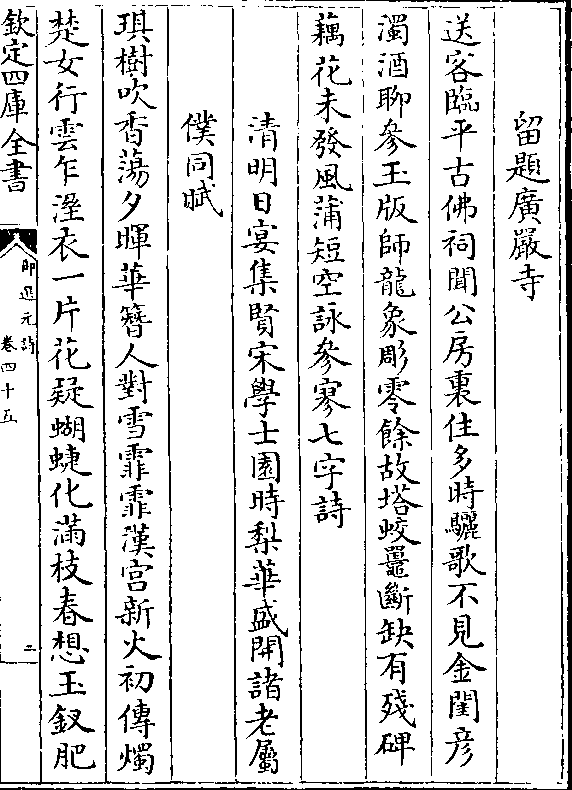 留題廣嚴寺
送客臨平古佛祠聞公房裏住多時驪歌不見金閨彦
濁酒聊參玉版師龍象彫零餘故塔蛟鼉斷缺有殘碑
藕花未發風蒲短空詠參寥七字詩
清明日宴集賢宋學士園時梨華盛開諸老屬
僕同賦
琪樹吹香蕩夕暉華簪人對雪霏霏漢宫新火初傳燭
楚女行雲乍溼衣一片花疑蝴蜨化滿枝春想玉釵肥
欽定四庫全書
御選元詩
卷四十五
三